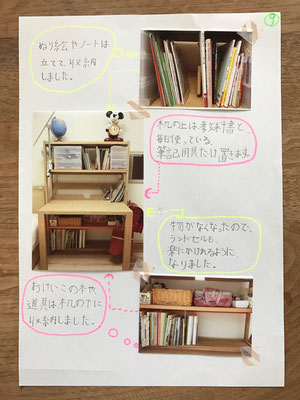 ⑨
ぬり絵やノートは
立てて収納
しました。
机の上は教科書と、
毎日使っている、
筆記用具だけ置きます。
物がなくなったので、
ランドセルも、
楽にかけれるように
なりました。
おけいこの本や、
道具は机の下に
収納しました。